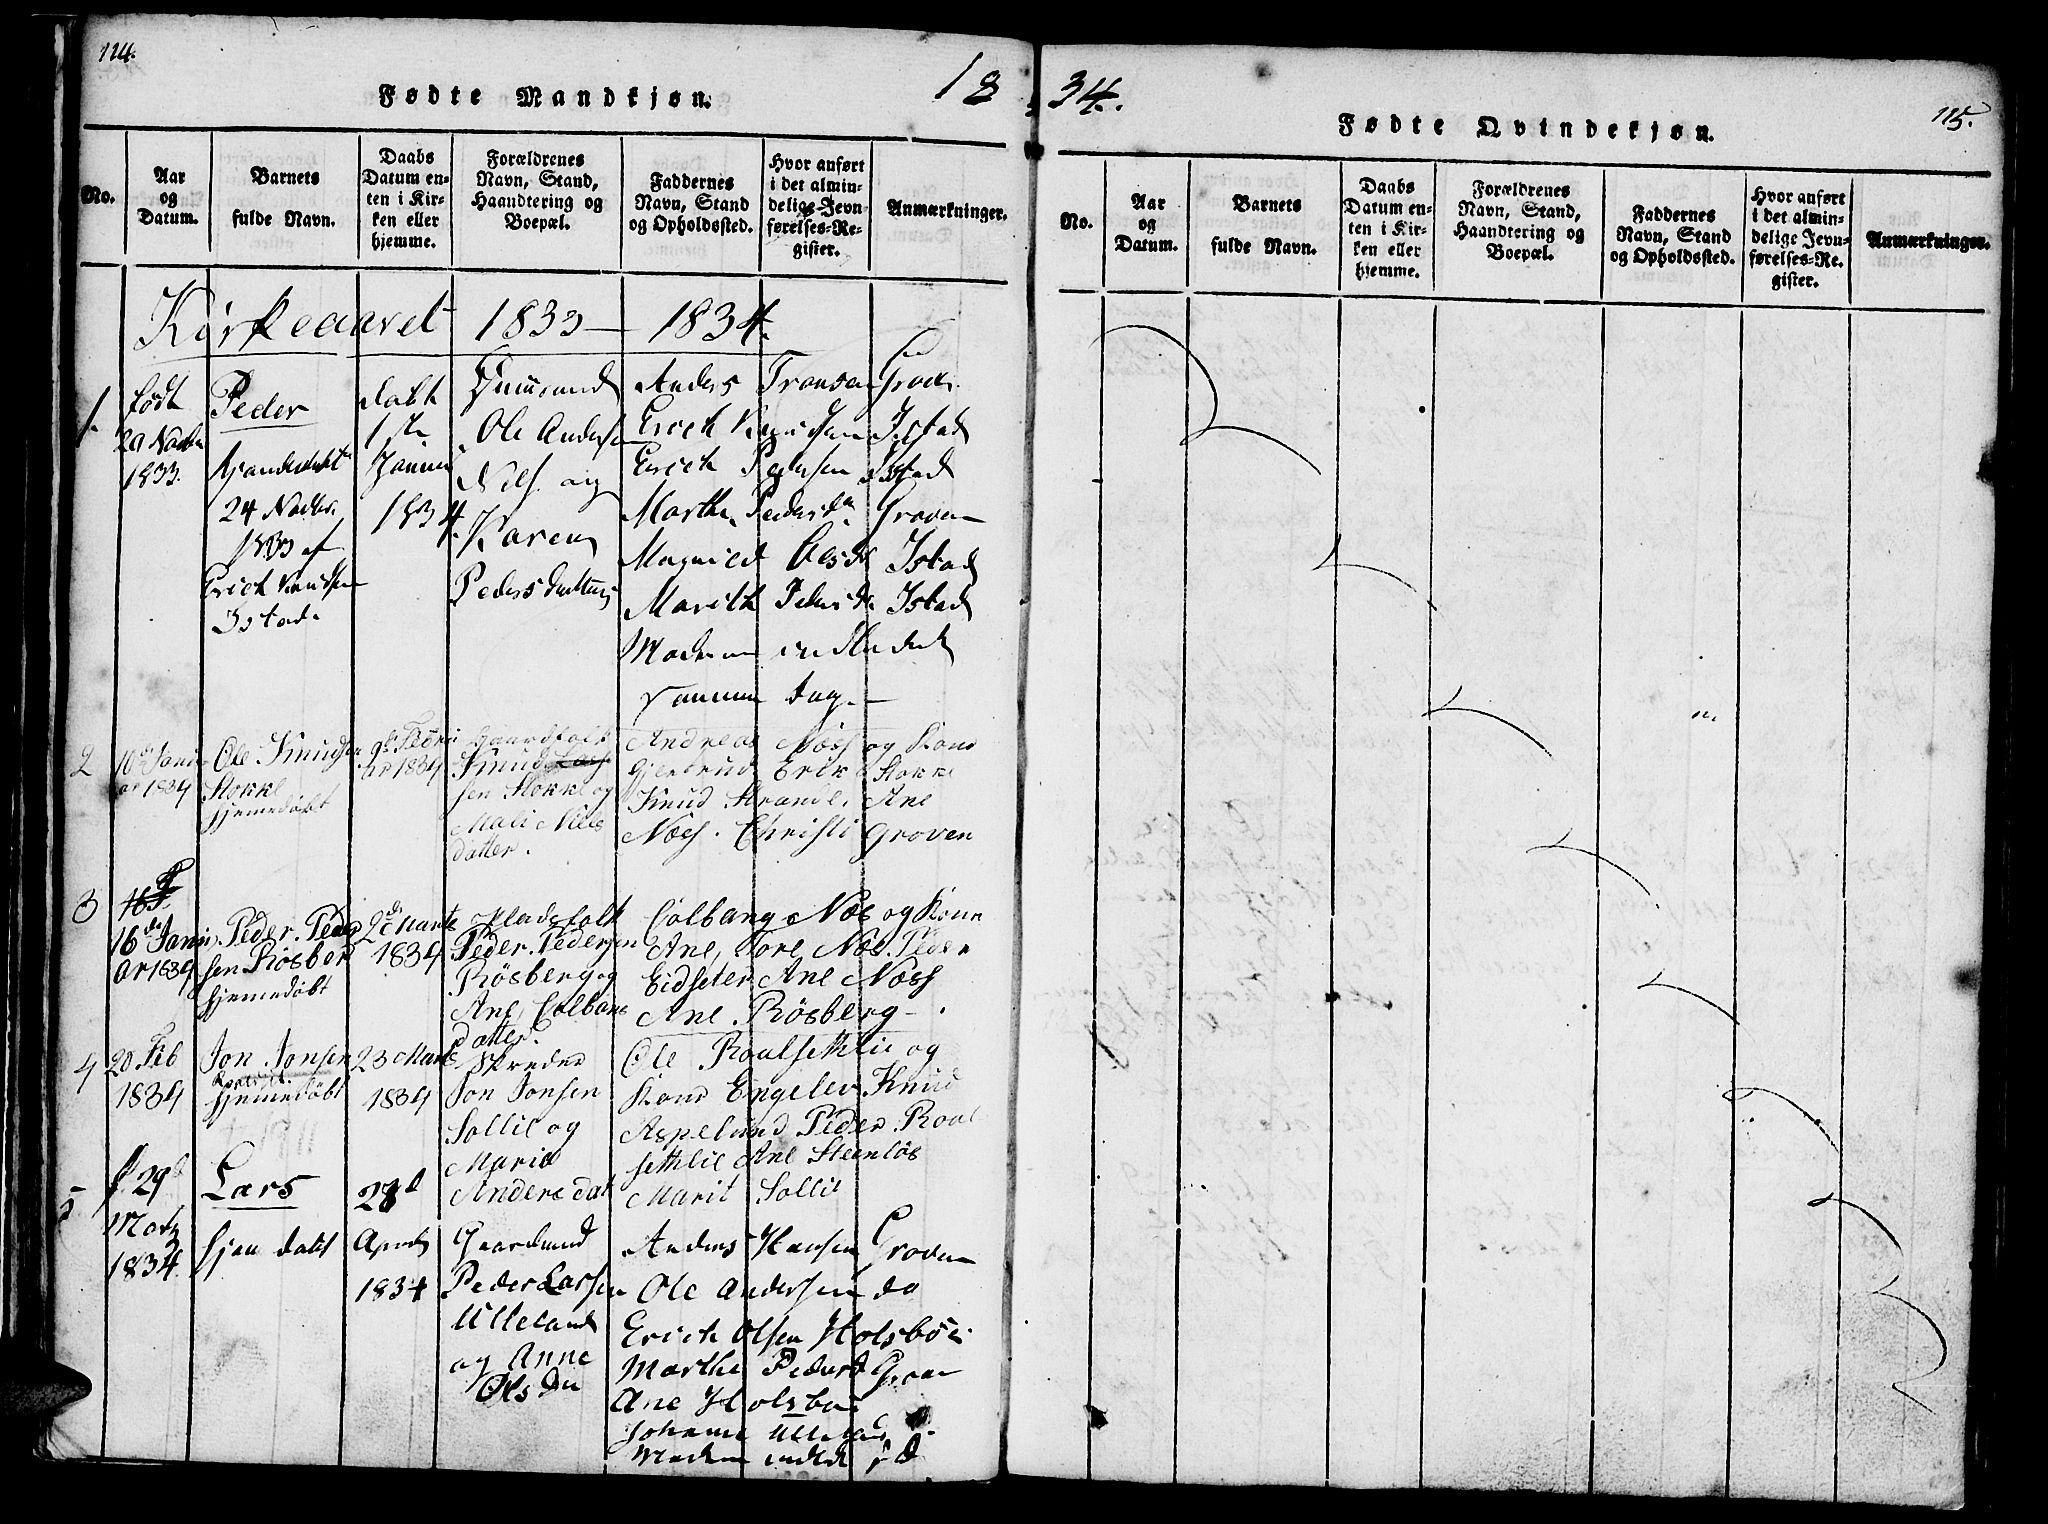 114.
18
34.
115.
Fødte Mandkjøn.
No.
Aar og Datum.
Barnets fulde Navn.
Daabs Datum enten i Kirken eller hjemme.
Forældrenes Navn, Stand, Haandtering og Boepæl.
Faddernes Navn, Stand og Opholdssted.
Hvor anført i det almindelige Jevnførelses-Register.
Anmærkninger.
Kirkeaaret 1833 — 1834.
1.
født
1833.
Peder
24 Novbr.
1833 af
Erich Knudsen
Istad.
døbt
1ste
1834
Ole Andersen
Nils. og
Karen
Peders datter
Anders Groven
Erich Knudsen Istad
Erich Pedersen Istad
Marthe Pedersd. Groven
Istad
Marith Pedersd. Istad
Moderen indledet
samme dag. —
2
10de Janu
ar 1834
Ole Knudsen
Stokke
hjemedøbt
9de Febru
ar 1834
Gaardfolk
Knud Lars
sen Stokke og
Mali Niels
datter.
Andreas Næss og Kone
Gjertrud Erik Stokke
Knud Strande, Ane
Næss. Christi Groven
3
16de Janu
ar 1834
Peder. Peder
sen Røsberg
hjemedøbt
2de Marts
1834
Pladsfolk
Peder. Pedersen
Røsberg og
Ane, Colbens
datter.
Colbang Næs og Kone
Ane, Tore Næs. Peder
Eidseter Ane Næss
Ane. Røsberg — .
4
20 Feb
1834
Jon. Jonsen
hjemedøbt
23 Marts
1834
Skreder
Jon Jonsen
Sollie og
Marie
Anders dat
Ole Roalsethlie og
Kone Engelev. Knud
Aspelund Peder. Roal
sethlie Ane Steenløs
Marit Sollie
5
f. 29d
Marts
1834
Lars
hjem døbt
April
1834
Gaardmand
Peder Larsen
Ulleland
og Anne
Ols Da
Anders Hansen Groven
Ole Andersen do
Erich Olsen Holsbøe
Marthe Pedersd
Ane Holsbøe
Johanne
Fødte Qvindekjøn.
No.
Aar og Datum.
Barnets fulde Navn.
Daabs Datum enten i Kirken eller hjemme.
Forældrenes Navn, Stand, Haandtering og Boepæl.
Faddernes Navn, Stand og Opholdssted.
Hvor anført i det almindelige Jevnførelses-Register.
Anmærkninger.